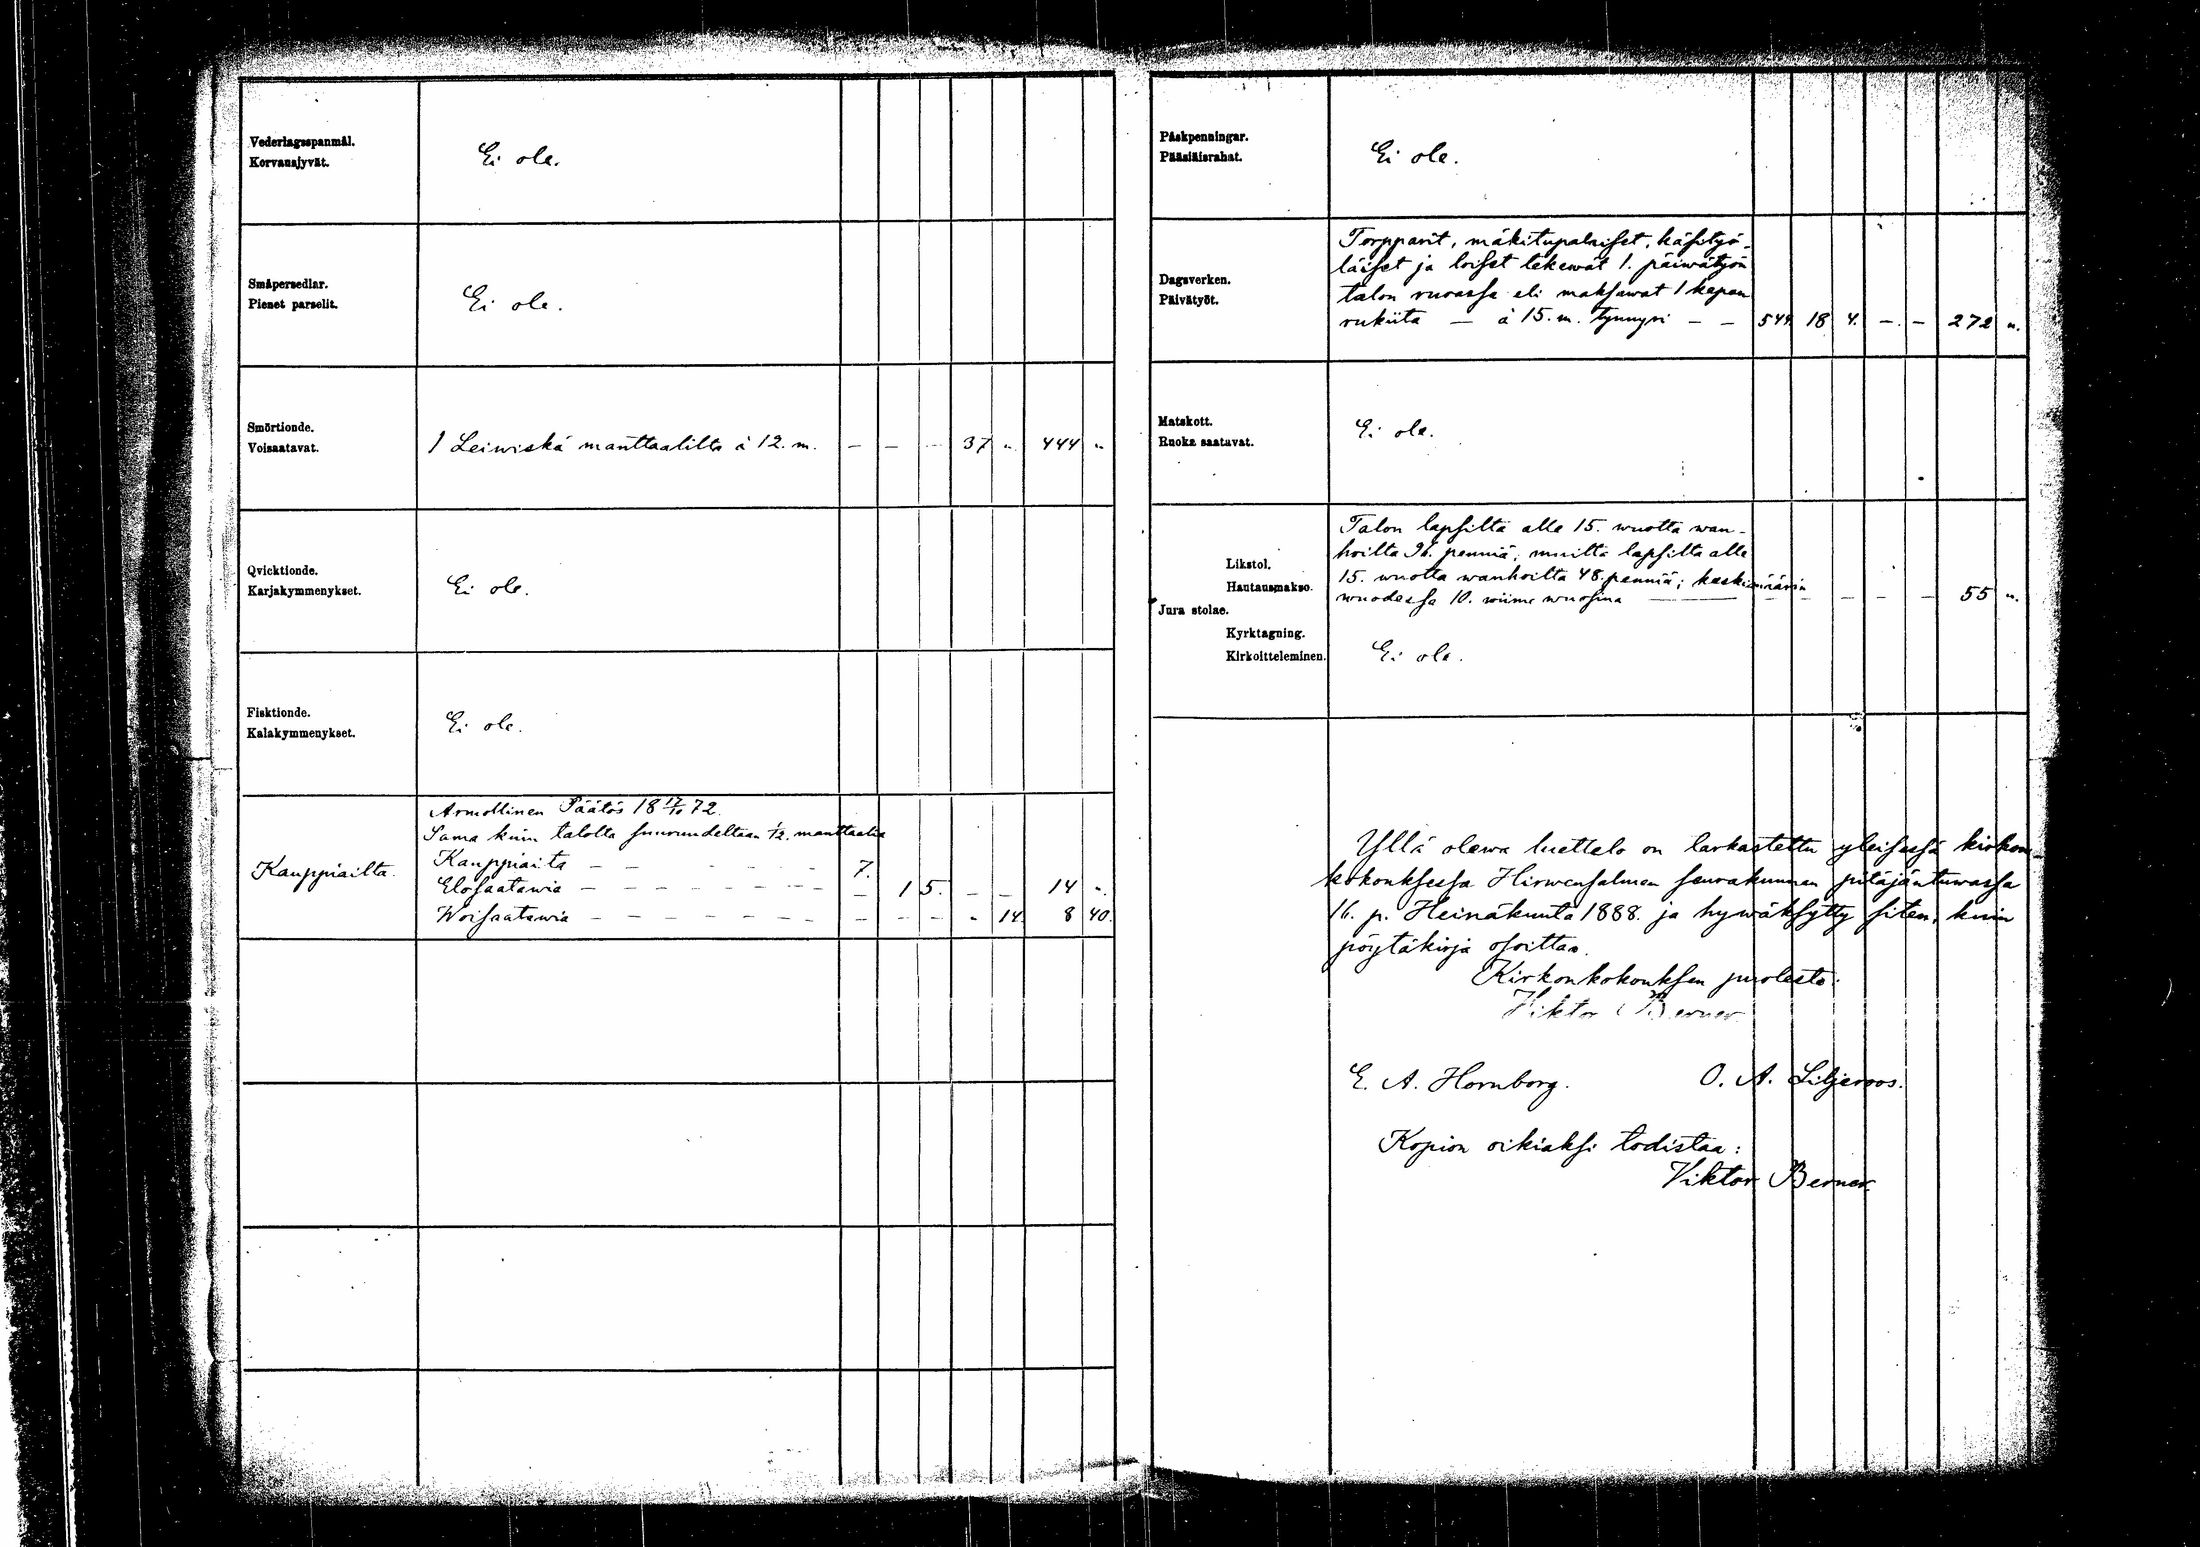 Vederlagsspanmål.
Korvausjyvät.
Ei ole.
Småpersedlar.
Pienet parselit.
Ei ole.
Smörtionde.
Voisaatavat.
1 Leiwiskä manttaalilta à 12. m. — — — 37 " 444 "
Qvicktionde.
Karjakymmenykset.
Ei ole.
Fisktionde.
Kalakymmenykset.
Ei ole.
Kauppiailta.
Armollinen Päätös 18 17/10 72.
Sama kuin talolta suuruudeltaan 1/12. manttaalia
Kauppiaita — — — — — 7.
Elosaatawia — — — — — — — — 1 5. — — 14 "
Woisaatawia — — — — — — — — — — " 14. 8 40.
Påskpenningar.
Pääsiäisrahat.
Ei ole.
Dagsverken.
Päivätyöt.
Torpparit, mäkitupalaiset, käsityö-
läiset ja loiset tekewät 1. päiwätyön
talon ruoassa eli maksawat 1 kapan
rukiita — à 15. m. tynnyri — — 544. 18 4. — — 272 "
Matskott.
Ruoka saatavat.
Ei ole.
Jura stolae.
Likstol.
Hautausmakso.
Talon lapsilta alle 15. wuotta wan-
hoilta 96. penniä; muilta lapsilta alle
15. wuotta wanhoilta 48. penniä; keskimäärin
wuodessa 10. wiime wuosina — — — — — 55 "
Kyrktagning.
Kirkoitteleminen.
Ei ole.
Yllä olewa luettelo on tarkastettu yleisessä kirkon-
kokouksessa Hirwensalmen seurakunnan pitäjäntuwassa
16. p. Heinäkuuta 1888. ja hywäksytty siten, kuin
pöytäkirja osoittaa.
Kirkonkokouksen puolesta:
Viktor Berner.
E. A. Hornborg. O. A. Liljeroos.
Kopion oikiaksi todistaa:
Viktor Berner.